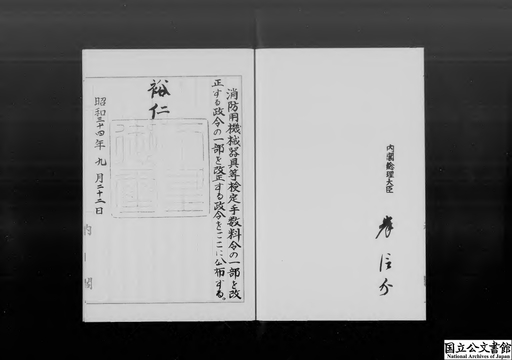 内閣総理大臣
岸信介
消防用機械器具等検定手数料令の一部を改
正する政令の一部を改正する政令をここに公布する。
裕仁
昭和三十四年九月二十二日
内閣
国立公文書館
National Archives of Japan